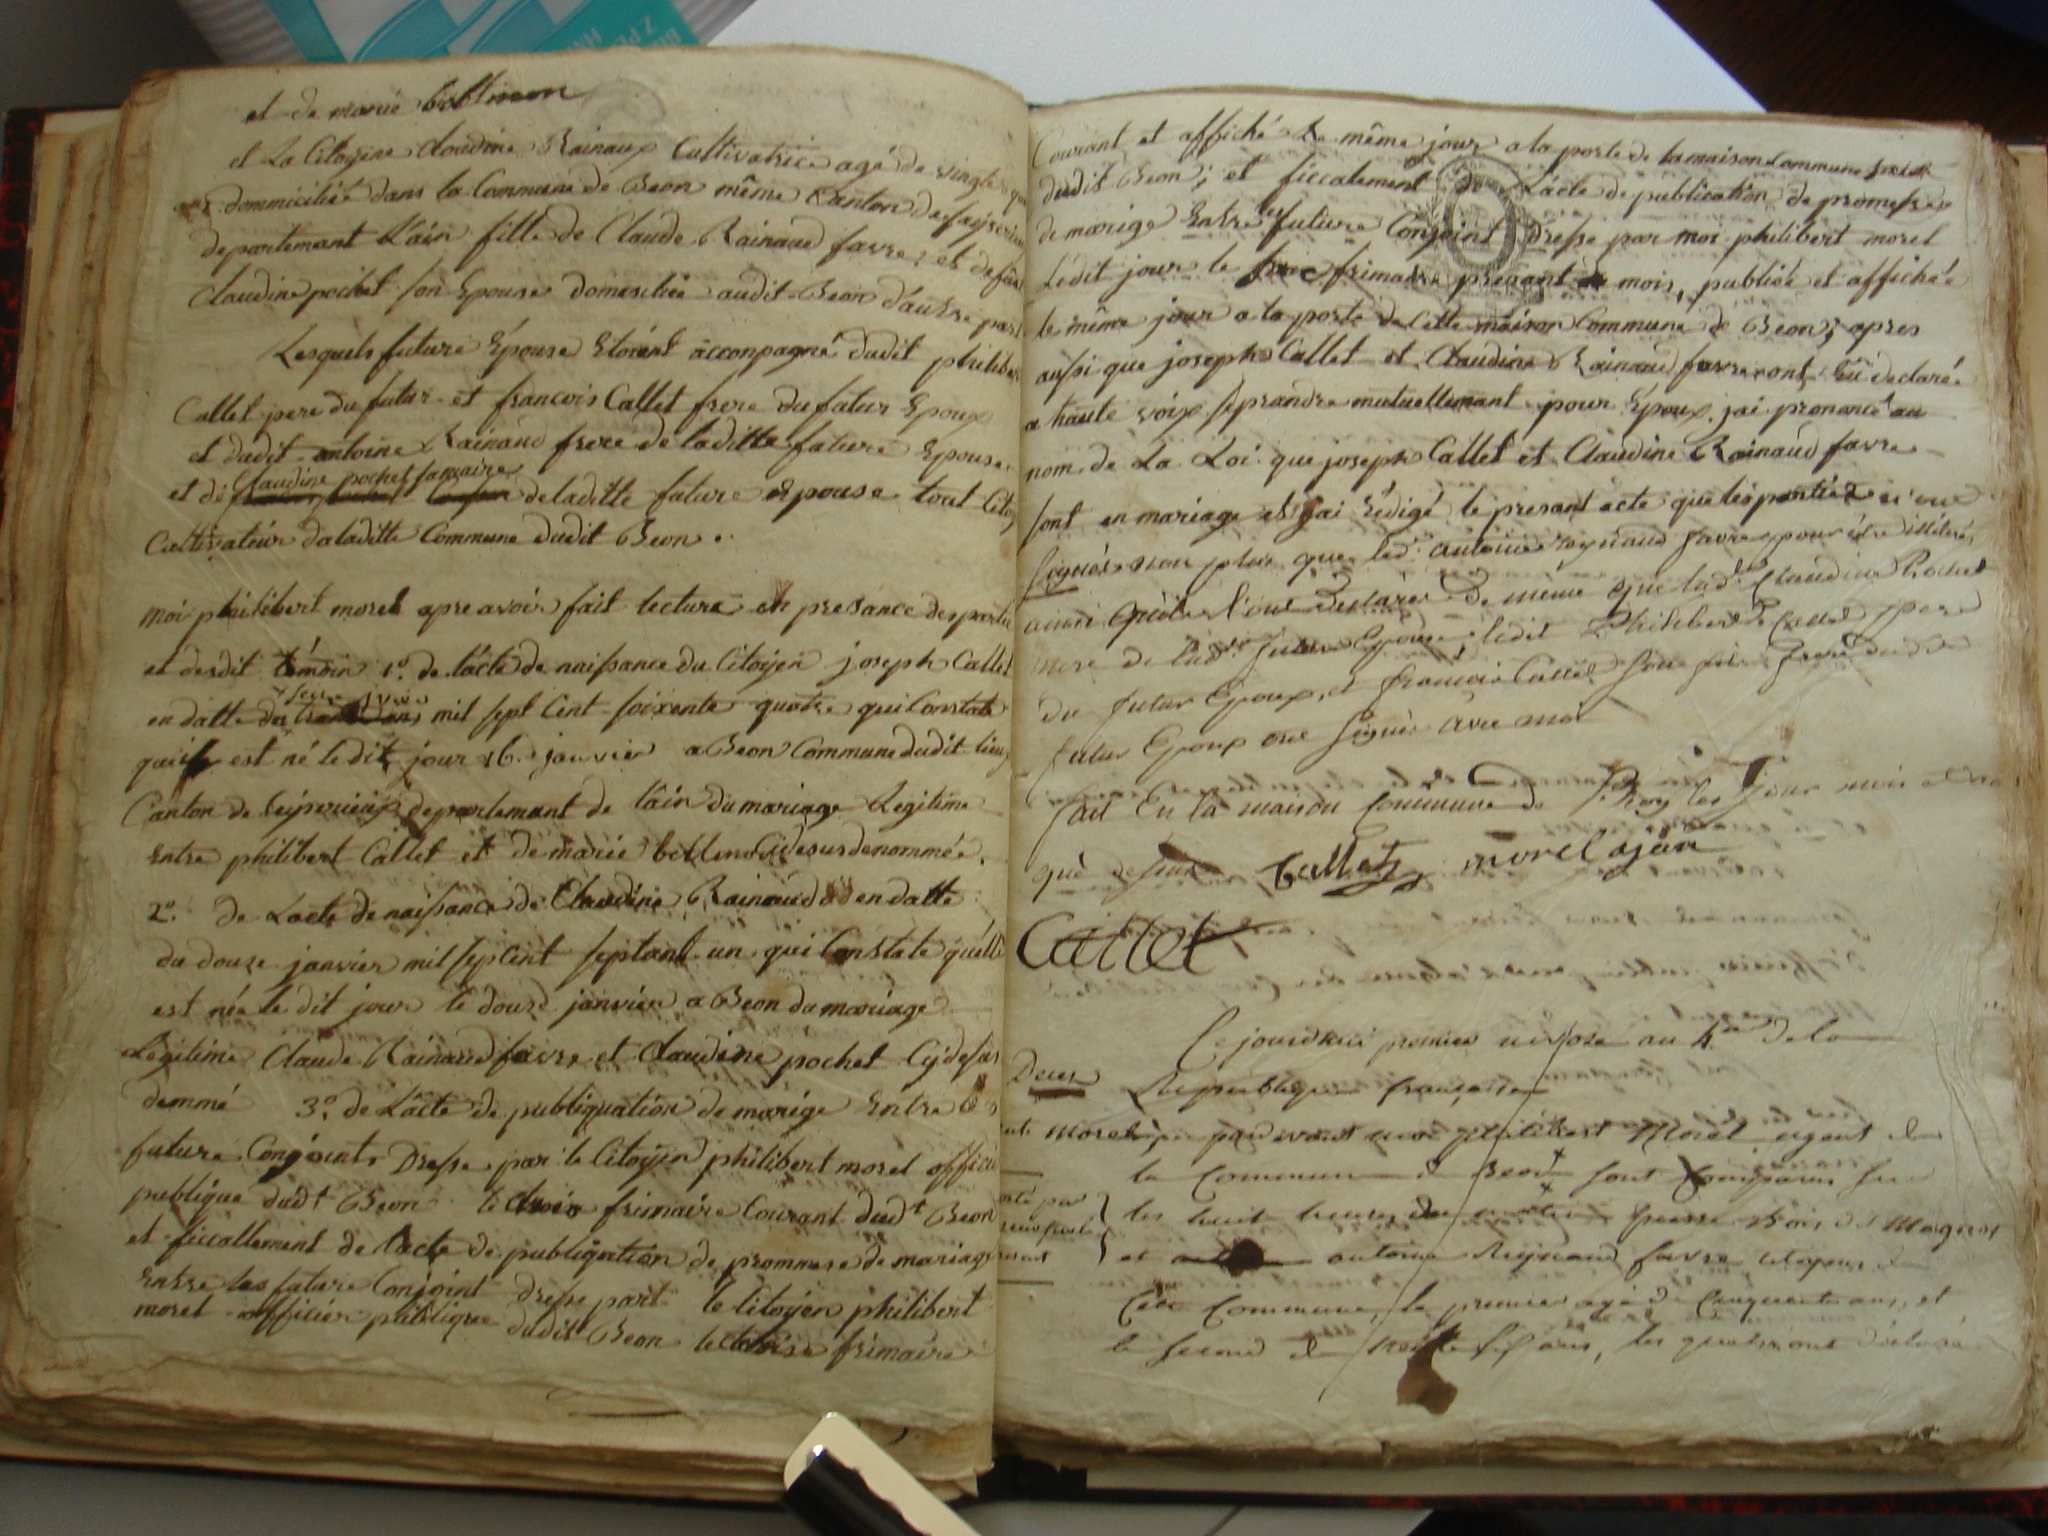 et de marie bollinon
et La Citoyene Claudine Rainaux Cultivatrice agé de vingt
dommiciliée dans la Commune de Beon même Canton de
departemant L'ain fille de Claude Rainaud favre, et de
Claudine pochet son Epouse domiciliée audit Beon d'autre part
Lesquels future Epouse Etoient accompagné dudit philibe
Callet pere du futur et francois Callet frere du fatur Epoux
et dudit antoine Rainaud frere de laditte future Epouse
Claudine pochet famaire
et de de laditte future Epouse tout Cito
Cultivateur de laditte Commune dudit Beon.
moi philibert morel apre avoir fait lecture en presance des partie
et desdit témoin 1°. de lacte de naissance du Citoyen joseph Callet
en datte du mil sept Cent soixente quatre qui Constate
qu'il est né le dit jour 16. janvier a Beon Commune dudit lieu
Canton de departemant de lain du mariage Legitime
Entre philibert Callet et de marie cidesus denommée.
2°. de Lacte de naissance de Claudine Rainaud en datte
du douze janvier mil sept Cent septant un qui Constate quelle
est née le dit jour le douze janvier a Beon du mariage
Légitime Claude Rainaud favre et Claudine pochet Cy desus
demmé 3°. de Lacte de publiquation de marige Entre les
future Conjoint Dresse par le Citoyen philibert morel officie
publique dudt Beon le frimaire Courant dudt Beon
et ficcallement de lacte de publiqation de prommese de mariage
Entre les future Conjoint dresse part le Citoyen philibert
morel officier publique dudit Beon le frimaire
Courant et affiché Le même jour a la porte de la maison Commune
dudit Beon; et ficcalement de Lacte de publication de promesse
de marige Entre les future Conjoint Dresse par moi philibert morel
Ledit jour le frimaire presant mois, publiée et affichée
le même jour a la porte de Cette maison Commune de Beon; apres
aussi que joseph Callet et Claudine Rainaud favre ont Eu declarée
a haute voix se prandre mutuellemant pour Epoux jai prononcé au
nom de La Loi que joseph Callet et Claudine Rainaud favre
sont en mariage et jai Rédigé le presant acte que les partiez n'ont
signées non plus que led. antoine reynaud favre pour être illitéré,
ainsi qu'ils l'ont declarer de même que lad. Claudine Pochet
mere de lad. future Epouse, ledit Philibert Callet pere
du futur Epoux, et francois Callet son fils frere dud
futur Epoux ont signés avec moi
fait En la maison Commune de les Jour mois et an
que dessus Callet morel ajan
Callet
Ce jourdhui premier nivose an 4me de la
Deces Republique francaise
Morel pardevant nous philibert Morel agent de
la Commune de Beon sont Comparus sur
les huit heures du matin
et antoine Reynaud favre citoyens
Cette Commune, le premier agé de Cinquante ans, et
le second de ans, les quels mont déclaré